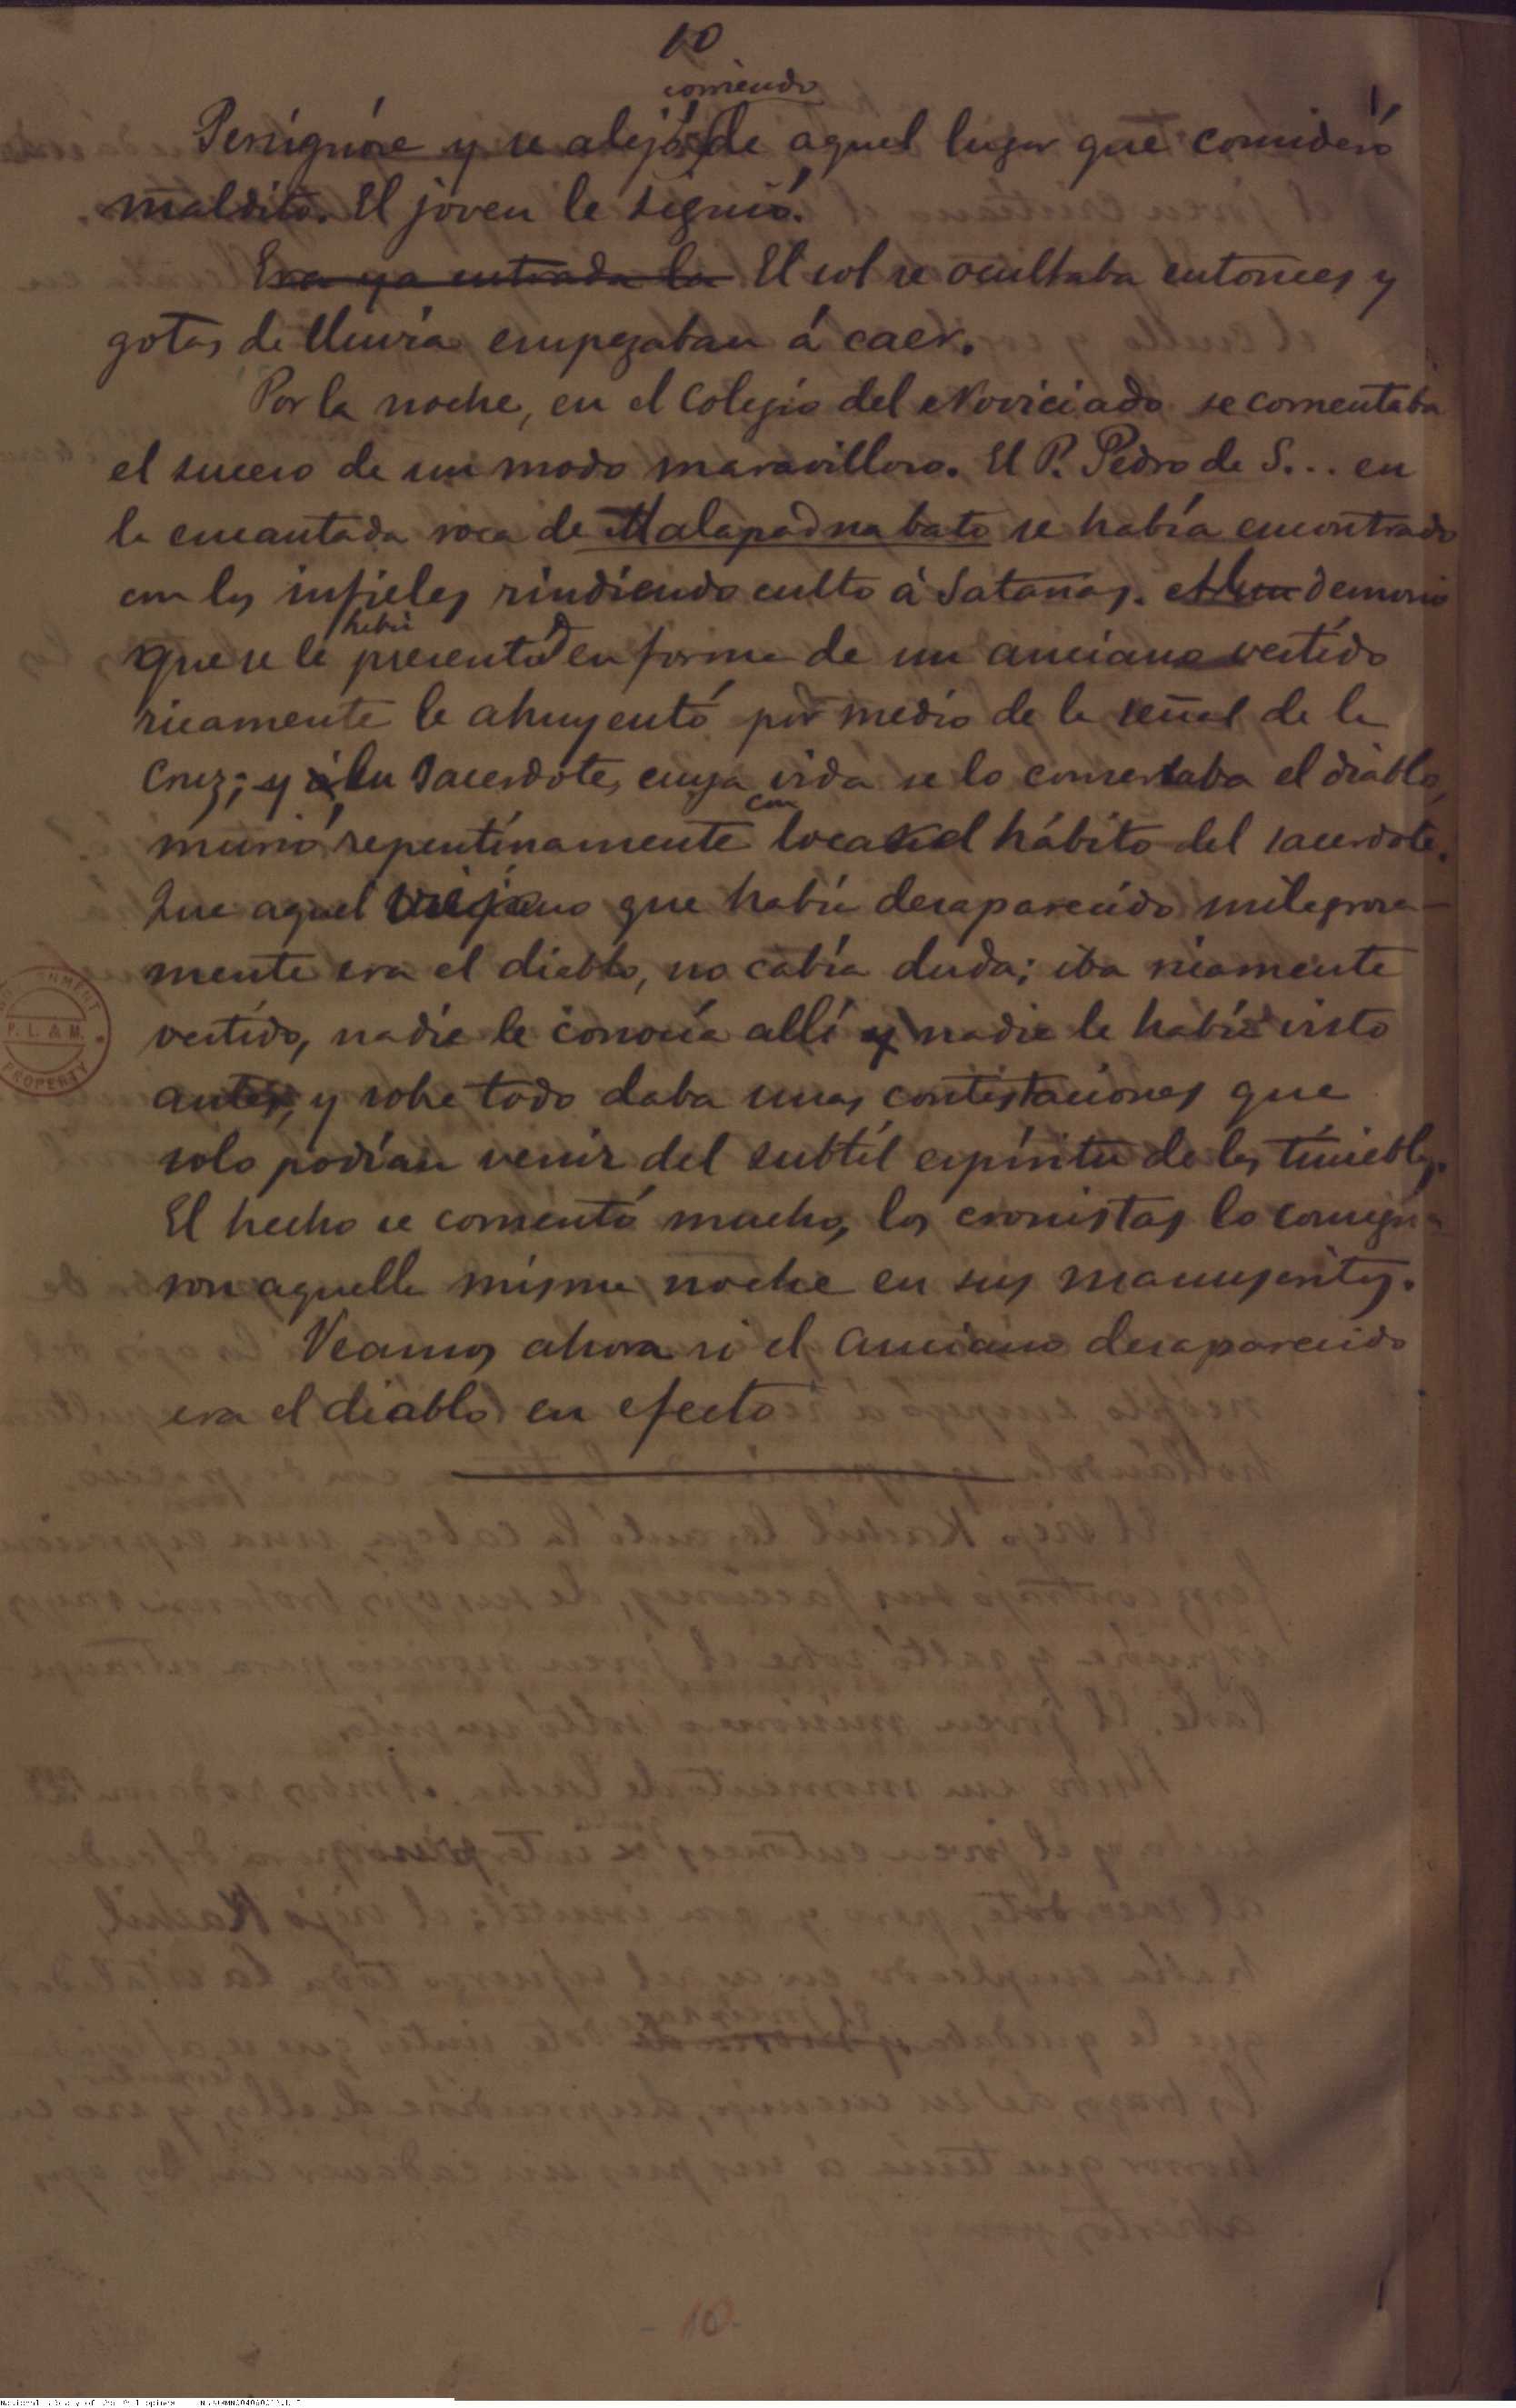 10
corriendo
Persignóse y se alejó de aquel lugar que consideró
maldito. El joven le siguió.
Era ya entrada la El sol se ocultaba entonces y
gotas de lluvia empezaban á caer.
Por la noche, en el Colegio del Noviciado se comentaba
el suceso de un modo maravilloso. El P. Pedro de S... en
la encantada roca de Malapad na bato se había encontrado
con los infieles rindiendo culto á Satanás. demonio
había
que se le presentó en forma de un anciano vestido
ricamente le ahuyentó por medio de la señal de la
Cruz; y su Sacerdote, cuya vida se lo conservaba el diablo,
con
murió repentinamente el hábito del sacerdote.
Que aquel que había desaparecido milagrosa-
mente era el diablo, no cabía duda; iba ricamente
vestido, nadie le conocía allí y nadie le había visto
antes, y sobre todo daba unas contestaciones que
solo podían venir del subtil espíritu de las tinieblas.
El hecho se comentó mucho, los cronistas lo consigna-
ron aquella misma noche en sus manuscritos.
Veamos ahora si el anciano desaparecido
era el diablo en efecto
P. L. & M.
PROPERTY
10